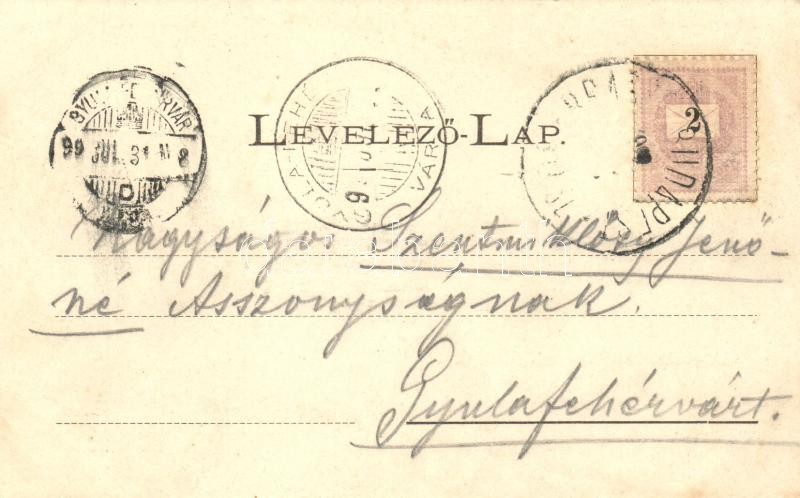 GYULAFEHÉRVÁR
99 JUL. 31
GYULA-FEHÉRVÁR
BUDAPEST
2
LEVELEZŐ-LAP.
Nagyságos Szentmiklósy Jenő-
né Asszonyságnak.
Gyulafehérvárt.